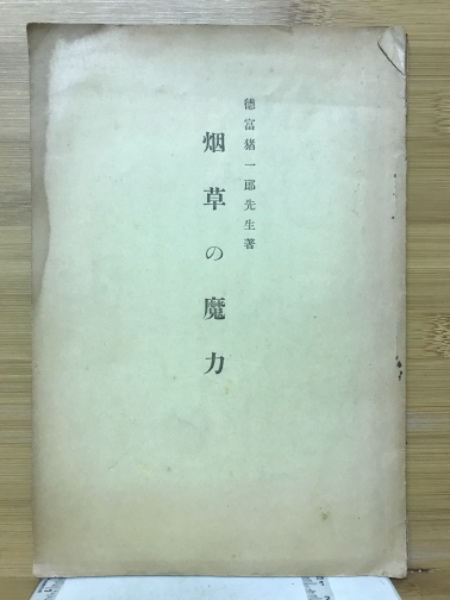 徳富猪一郎先生著
烟草の魔力